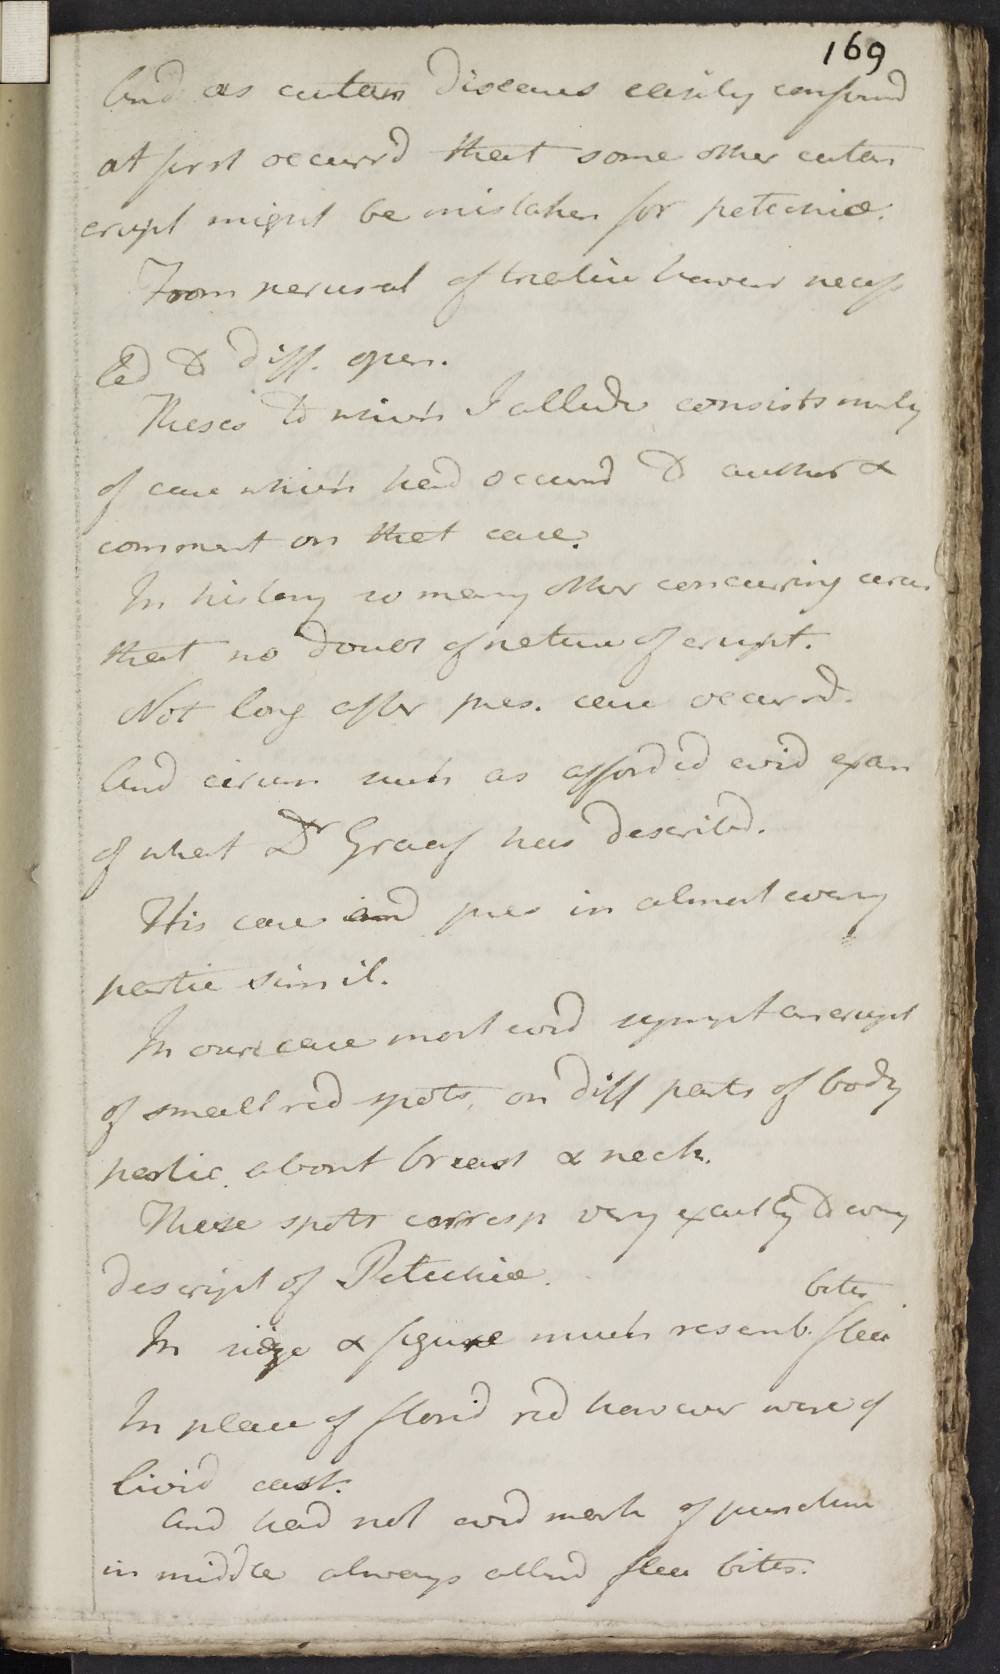 169
And as cutan Diseases easily confound
at first occurr'd that some other cutan
erupt might be mistaken for petechiæ.
From perusal of treatise however necess
led to diff. opin.
Thesis to which I allude consists merely
of case which had occurred to author &
comment on that case.
In history so many other concurring circum
that no doubt of nature of erupt.
Not long after pres. case occurrd.
And circum such as afforded evid exam
of what Dr Graaf has described.
His case and pres in almost every
partic simil.
In our case most evid sympt an erupt
of small red spots, on diff parts of body
partic. about breast & neck.
These spots corresp very exactly to every
descript of Petechiæ.
bites
In size & figure much resemb. flea
In place of florid red however were of
livid cast.
And had not evid mark of puncture
in middle always attend flea bites.